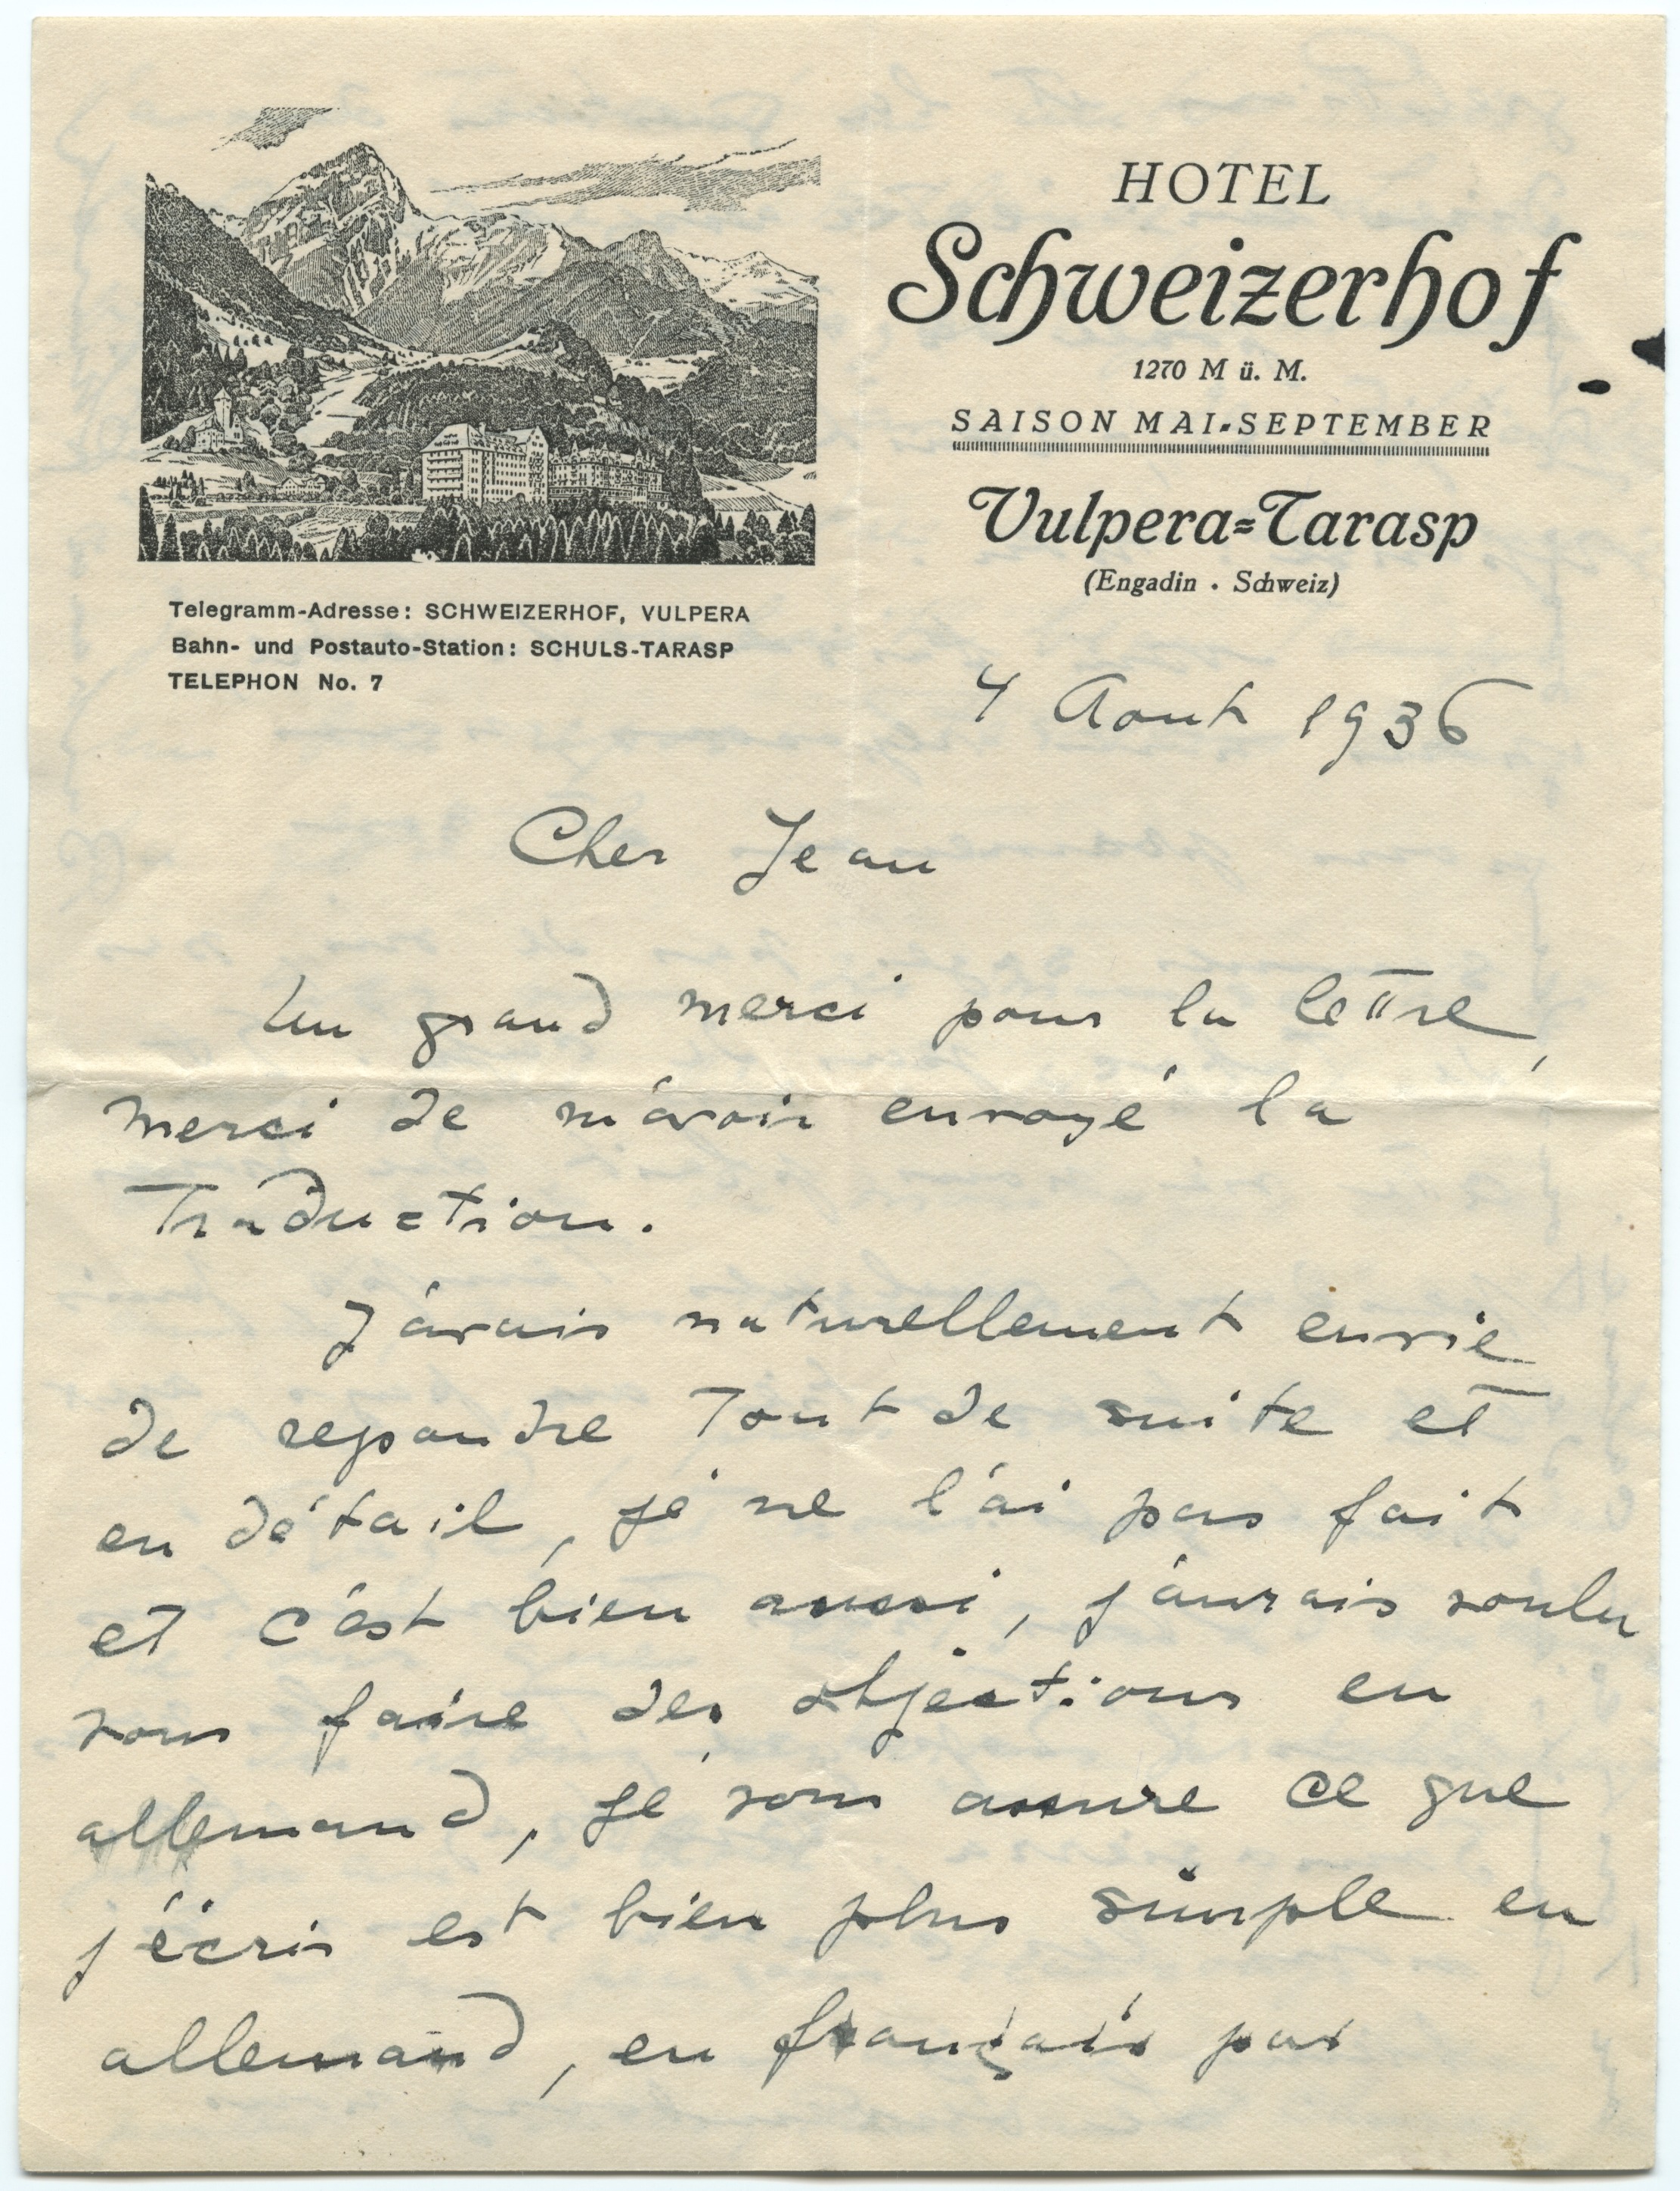 HOTEL
Schweizerhof
1270 M ü. M.
SAISON MAI-SEPTEMBER
Vulpera=Tarasp
(Engadin . Schweiz)
Telegramm-Adresse: SCHWEIZERHOF, VULPERA
Bahn- und Postauto-Station: SCHULS-TARASP
TELEPHON No. 7
4 Aout 1936
Cher Jean
Un grand merci pour la lettre,
merci de m'avoir envoyé la
Traduction.
J'avais naturellement envie
de repondre Tout de suite et
en détail, je ne l'ai pas fait
et c'est bien aussi, j'aurais voulu
vous faire des objections en
allemand, je vous assure ce que
j'écris est bien plus simple en
allemand, en français par